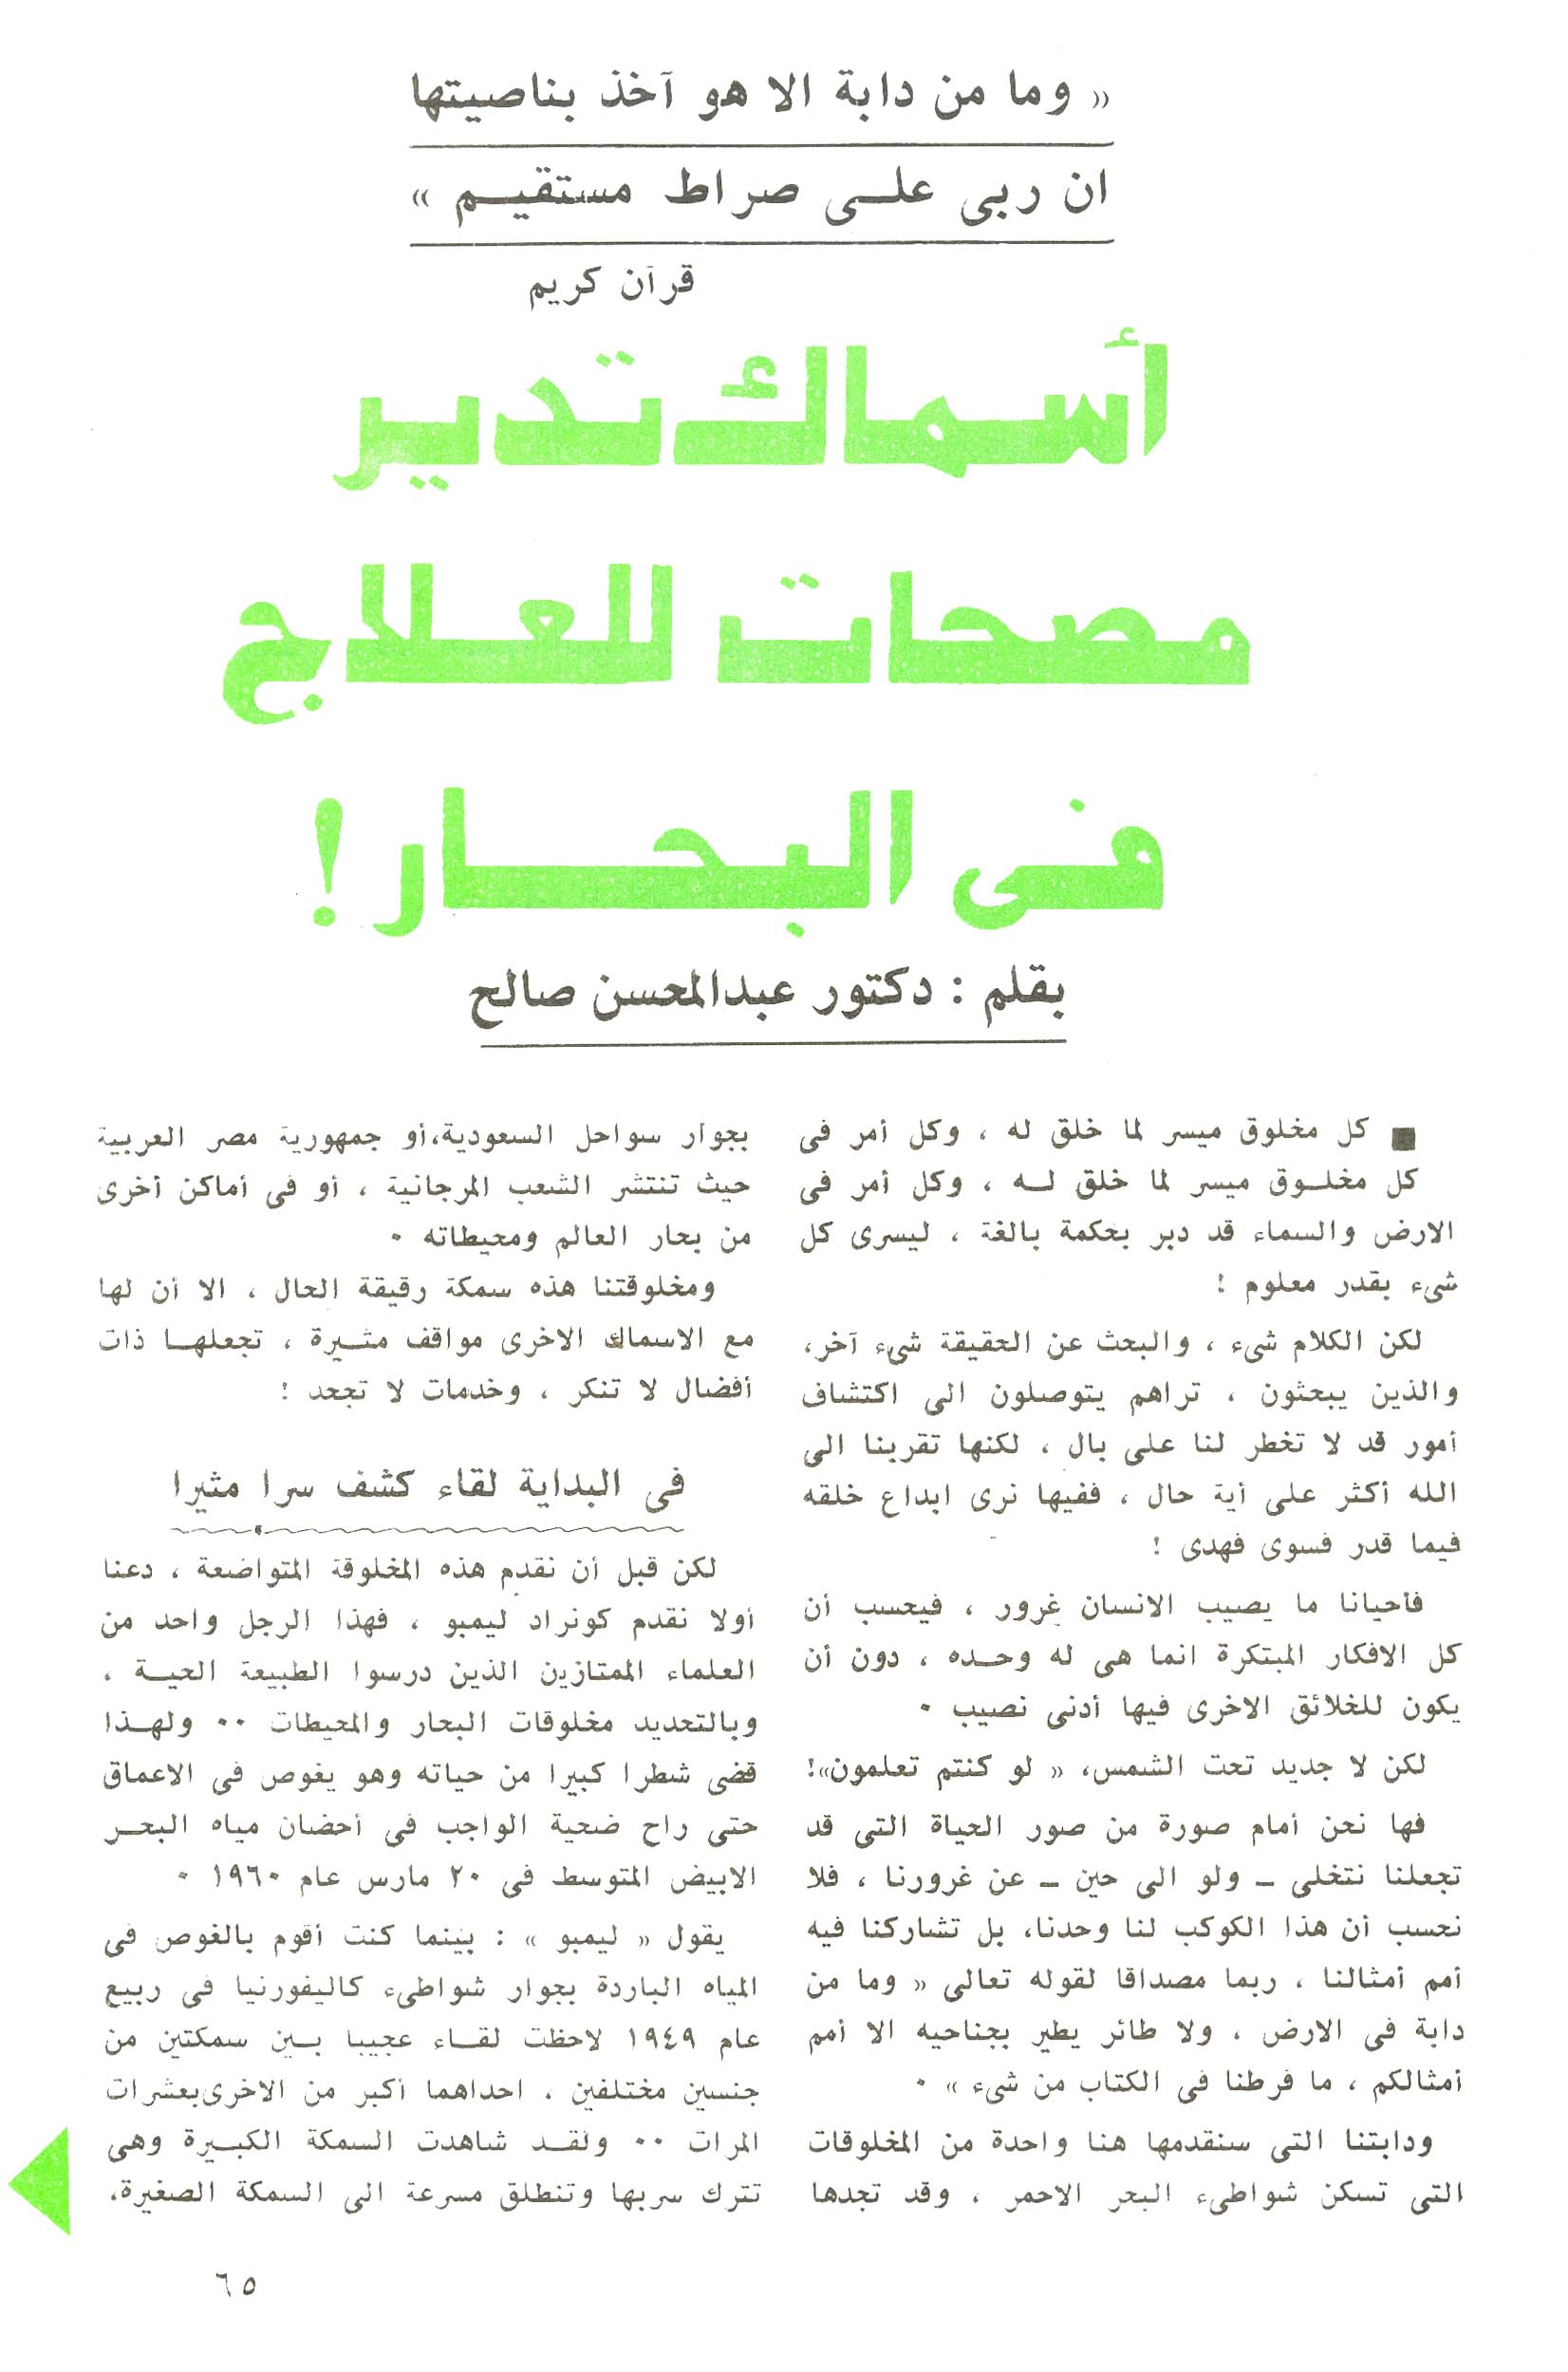 « وما من دابة الا هو آخذ بناصيتها
ان ربى على صراط مستقيم »
قرآن كريم
أسماك تدير
مصحات للعلاج
فى البحار !
بقلم : دكتور عبدالمحسن صالح
■ كل مخلوق ميسر لما خلق له ، وكل أمر فى
كل مخلوق ميسر لما خلق له ، وكل أمر فى
الارض والسماء قد دبر بحكمة بالغة ، ليسرى كل
شىء بقدر معلوم !
لكن الكلام شىء ، والبحث عن الحقيقة شىء آخر،
والذين يبحثون ، تراهم يتوصلون الى اكتشاف
أمور قد لا تخطر لنا على بال ، لكنها تقربنا الى
الله أكثر على أية حال ، ففيها نرى ابداع خلقه
فيما قدر فسوى فهدى !
فأحيانا ما يصيب الانسان غرور ، فيحسب أن
كل الافكار المبتكرة انما هى له وحده ، دون أن
يكون للخلائق الاخرى فيها أدنى نصيب ٠
لكن لا جديد تحت الشمس، « لو كنتم تعلمون»!
فها نحن أمام صورة من صور الحياة التى قد
تجعلنا نتخلى ــ ولو الى حين ــ عن غرورنا ، فلا
نحسب أن هذا الكوكب لنا وحدنا، بل تشاركنا فيه
أمم أمثالنا ، ربما مصداقا لقوله تعالى « وما من
دابة فى الارض ، ولا طائر يطير بجناحيه الا أمم
أمثالكم ، ما فرطنا فى الكتاب من شىء » ٠
ودابتنا التى سنقدمها هنا واحدة من المخلوقات
التى تسكن شواطىء البحر الاحمر ، وقد تجدها
بجوار سواحل السعودية،أو جمهورية مصر العربية
حيث تنتشر الشعب المرجانية ، أو فى أماكن أخرى
من بحار العالم ومحيطاته ٠
ومخلوقتنا هذه سمكة رقيقة الحال ، الا أن لها
مع الاسماك الاخرى مواقف مثيرة ، تجعلها ذات
أفضال لا تنكر ، وخدمات لا تجحد !
فى البداية لقاء كشف سرا مثيرا
لكن قبل أن نقدم هذه المخلوقة المتواضعة ، دعنا
أولا نقدم كونراد ليمبو ، فهذا الرجل واحد من
العلماء الممتازين الذين درسوا الطبيعة الحية ،
وبالتحديد مخلوقات البحار والمحيطات ٠٠ ولهذا
قضى شطرا كبيرا من حياته وهو يغوص فى الاعماق
حتى راح ضحية الواجب فى أحضان مياه البحر
الابيض المتوسط فى ٢٠ مارس عام ١٩٦٠ ٠
يقول « ليمبو » : بينما كنت أقوم بالغوص فى
المياه الباردة بجوار شواطىء كاليفورنيا فى ربيع
عام ١٩٤٩ لاحظت لقاء عجيبا بين سمكتين من
جنسين مختلفين ، احداهما أكبر من الاخرى بعشرات
المرات ٠٠ ولقد شاهدت السمكة الكبيرة وهى
تترك سربها وتنطلق مسرعة الى السمكة الصغيرة،
٦٥